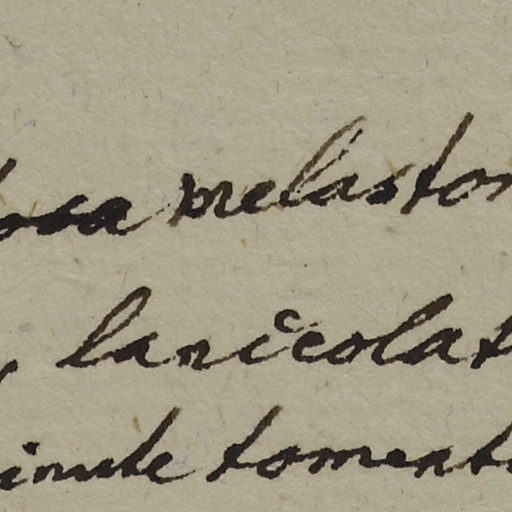 melaston
laniceolat
inute toment